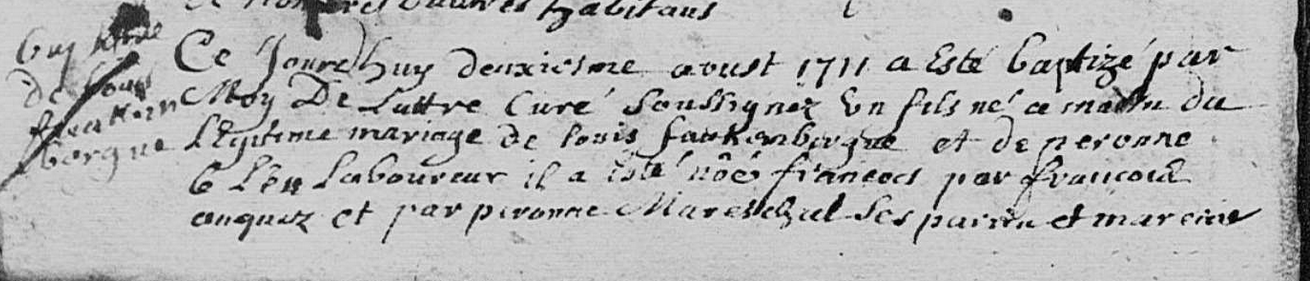 habitans
de Louis
borgne
Ce Jourdhuy deuxiesme aoust 1711 a Esté baptizé par
Moy De Lattre Curé Soussignéz Un fils né ce matin du
Légitime mariage de louis faukenbergue et de peronne
laboureur il a esté nôé françois par françois
anquez et par peronne Mareschal Ses parin et mareine